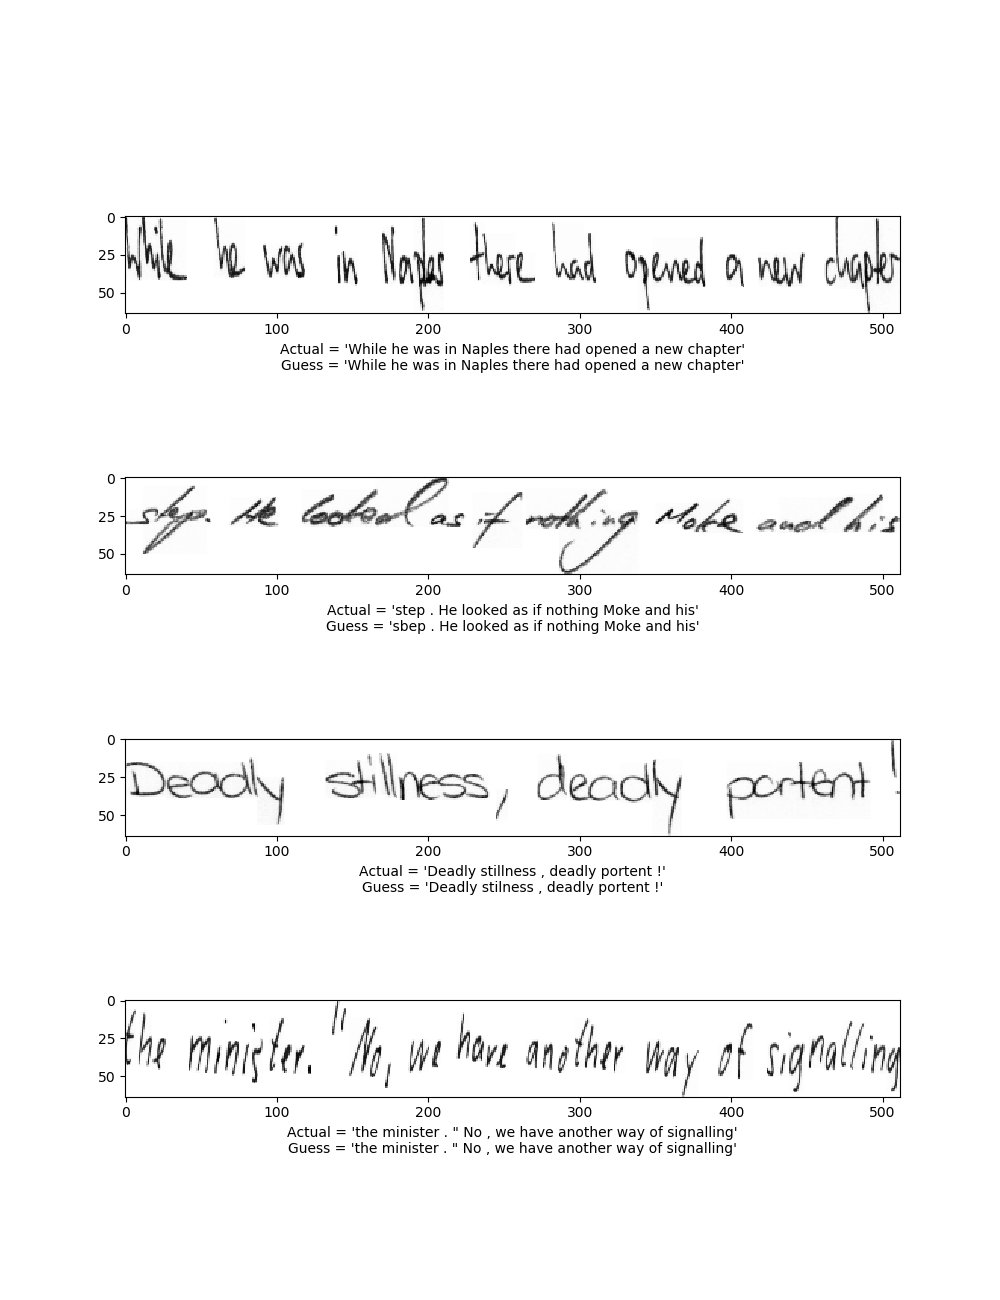 While he was in Naples there had opened a new chapter
0
25
50
0 100 200 300 400 500
Actual = 'While he was in Naples there had opened a new chapter'
Guess = 'While he was in Naples there had opened a new chapter'
step. He looked as if nothing Moke and his
0
25
50
0 100 200 300 400 500
Actual = 'step . He looked as if nothing Moke and his'
Guess = 'sbep . He looked as if nothing Moke and his'
Deadly stillness, deadly portent!
0
25
50
0 100 200 300 400 500
Actual = 'Deadly stillness , deadly portent !'
Guess = 'Deadly stilness , deadly portent !'
the minister. "No, we have another way of signalling
0
25
50
0 100 200 300 400 500
Actual = 'the minister . " No , we have another way of signalling'
Guess = 'the minister . " No , we have another way of signalling'